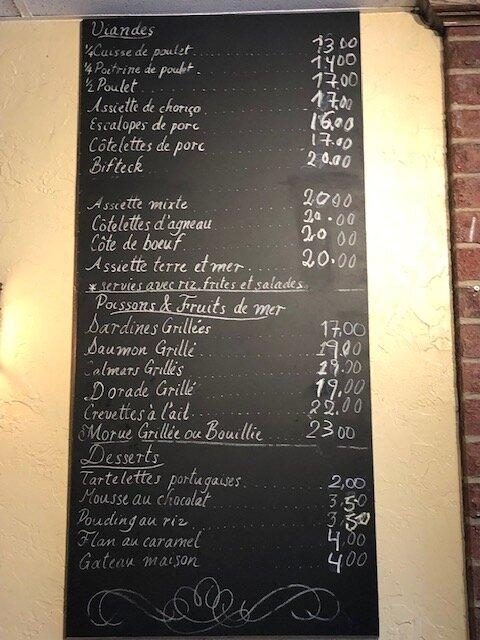 Viandes
1/4 Cuisse de poulet 13.00
1/4 Poitrine de poulet 14.00
1/2 Poulet 17.00
Assiette de choriço 17.00
Escalopes de porc 16.00
Côtelettes de porc 17.00
Bifteck 20.00
Assiette mixte 20.00
Côtelettes d'agneau 20.00
Côte de boeuf 20 00
Assiette terre et mer 20.00
* servies avec riz, frites et salades
Poissons & Fruits de mer
Sardines Grillées 17,00
Saumon Grillé 19,00
Calmars Grillés 19.00
Dorade Grillé 19,00
Crevettes à l'ail 22.00
Morue Grillée ou Bouillie 23 00
Desserts
Tartelettes portugaises 2,00
Mousse au chocolat 3,50
Pouding au riz 3,50
Flan au caramel 4,00
Gateau maison 4,00